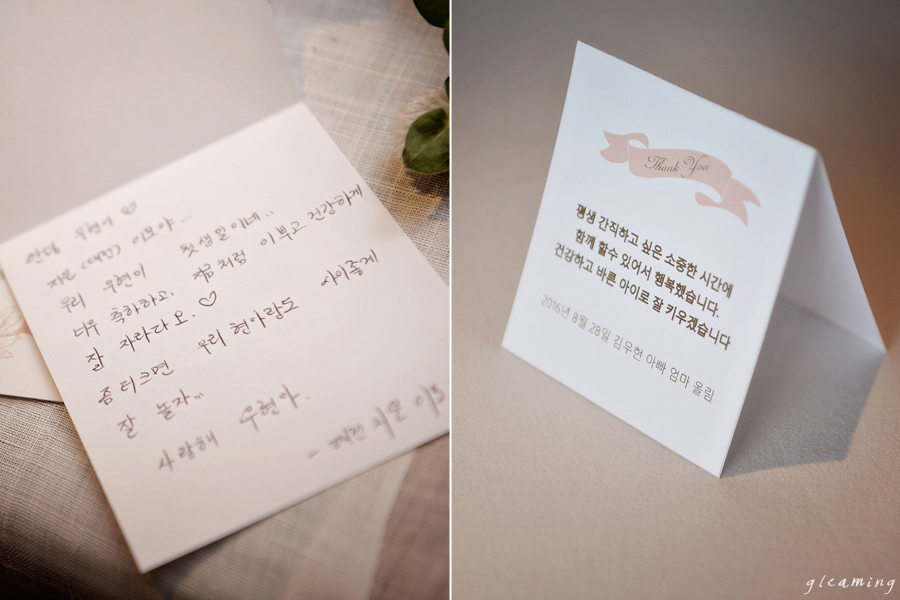 안녕 우현아 ♡
지윤 (대전) 이모야...
우리 우현이 첫생일이네..
너무 축하하고, 지금처럼 이쁘고 건강하게
잘 자라다오. ♡
좀더크면 우리 현아랑도 사이좋게
잘 놀자~
사랑해 우현아.
- 대전 지윤 이모
Thank You
평생 간직하고 싶은 소중한 시간에
함께 할수 있어서 행복했습니다.
건강하고 바른 아이로 잘 키우겠습니다
2016년 8월 28일 김우현 아빠 엄마 올림
gleaming